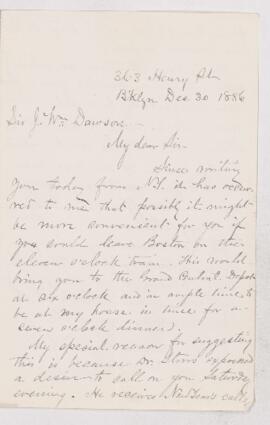 363 Henry St.
B'klyn Dec 30 1886
Sir J. Wm Dawson
My dear Sir
Since writing
you today from N.Y. it has occur-
red to me that possibly it might
be more convenient for you if
you could leave Boston on the
eleven o'clock train. This would
bring you to the Grand Central Depot
at six o'clock and in ample time to
be at my house in time for a
seven o'clock dinner.
My special reason for suggesting
this is because Dr. Storrs expressed
a desire to call on you Saturday
evening. He receives New Years calls